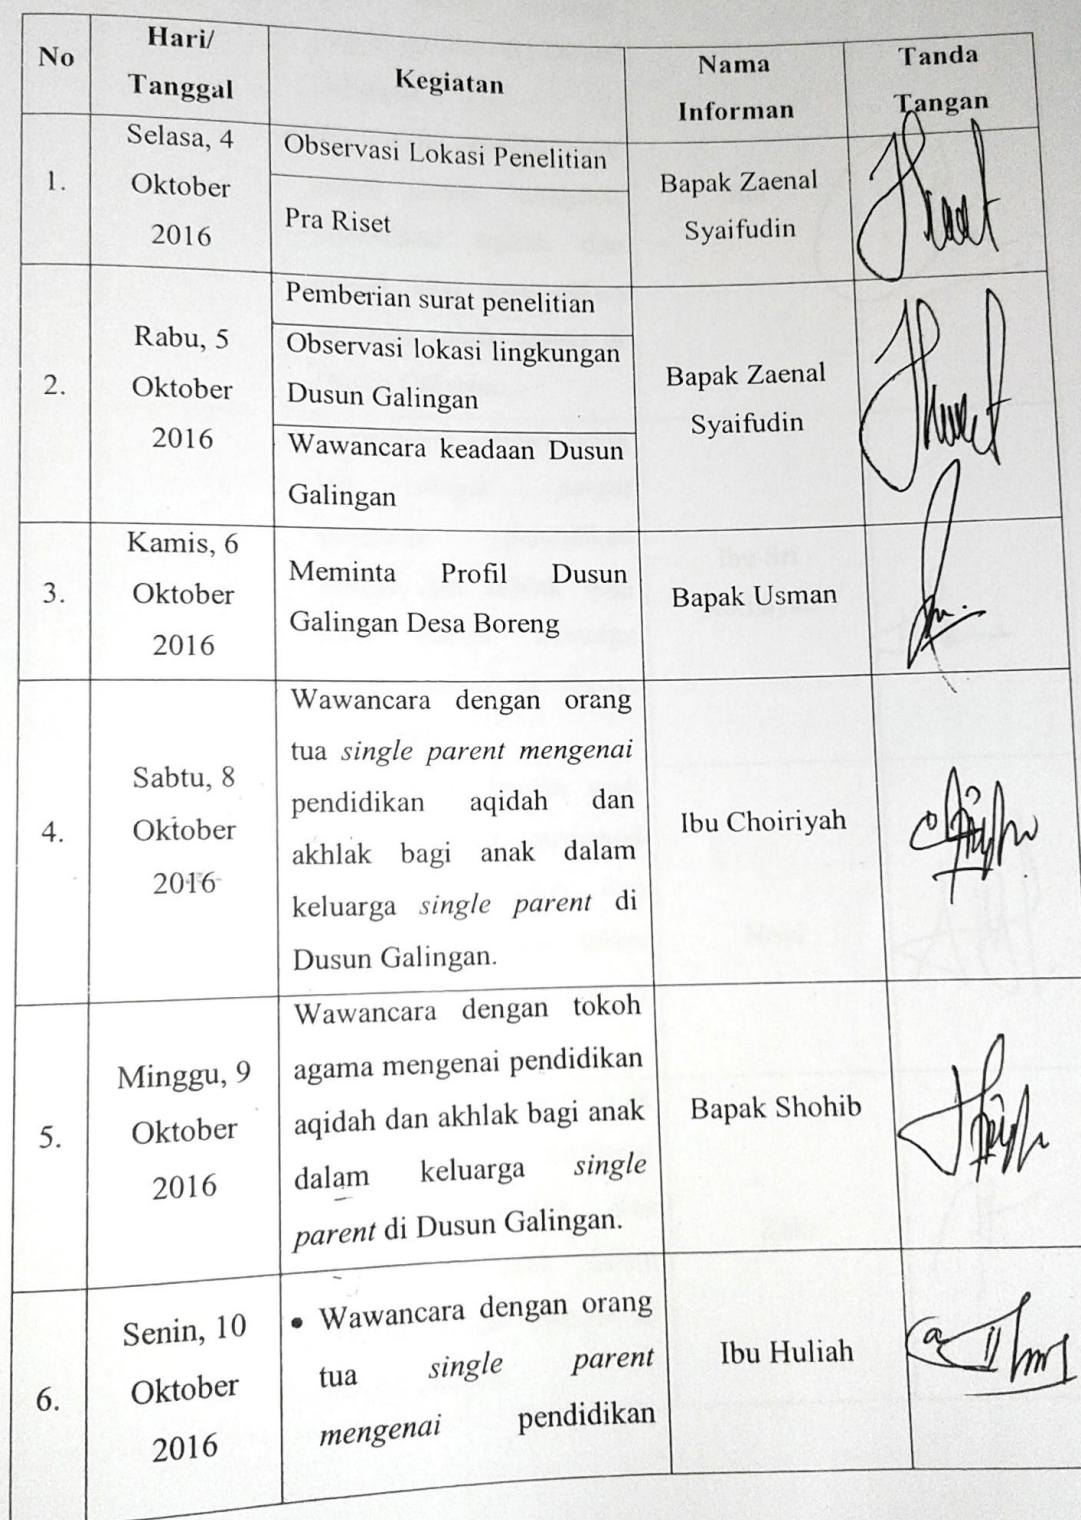 No
Hari/
Tanggal
Kegiatan
Nama
Informan
Tanda
Tangan
1.
Selasa, 4
Oktober
2016
Observasi Lokasi Penelitian
Pra Riset
Bapak Zaenal
Syaifudin
2.
Rabu, 5
Oktober
2016
Pemberian surat penelitian
Observasi lokasi lingkungan
Dusun Galingan
Wawancara keadaan Dusun
Galingan
Bapak Zaenal
Syaifudin
3.
Kamis, 6
Oktober
2016
Meminta Profil Dusun
Galingan Desa Boreng
Bapak Usman
4.
Sabtu, 8
Oktober
2016
Wawancara dengan orang
tua single parent mengenai
pendidikan aqidah dan
akhlak bagi anak dalam
keluarga single parent di
Dusun Galingan.
Ibu Choiriyah
5.
Minggu, 9
Oktober
2016
Wawancara dengan tokoh
agama mengenai pendidikan
aqidah dan akhlak bagi anak
dalam keluarga single
parent di Dusun Galingan.
Bapak Shohib
6.
Senin, 10
Oktober
2016
• Wawancara dengan orang
tua single parent
mengenai pendidikan
Ibu Huliah